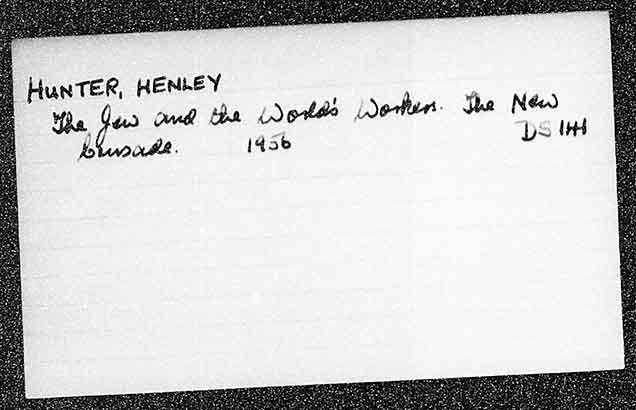 HUNTER, HENLEY
The Jew and the World's Workers. The New
Crusade. 1956 DS 141